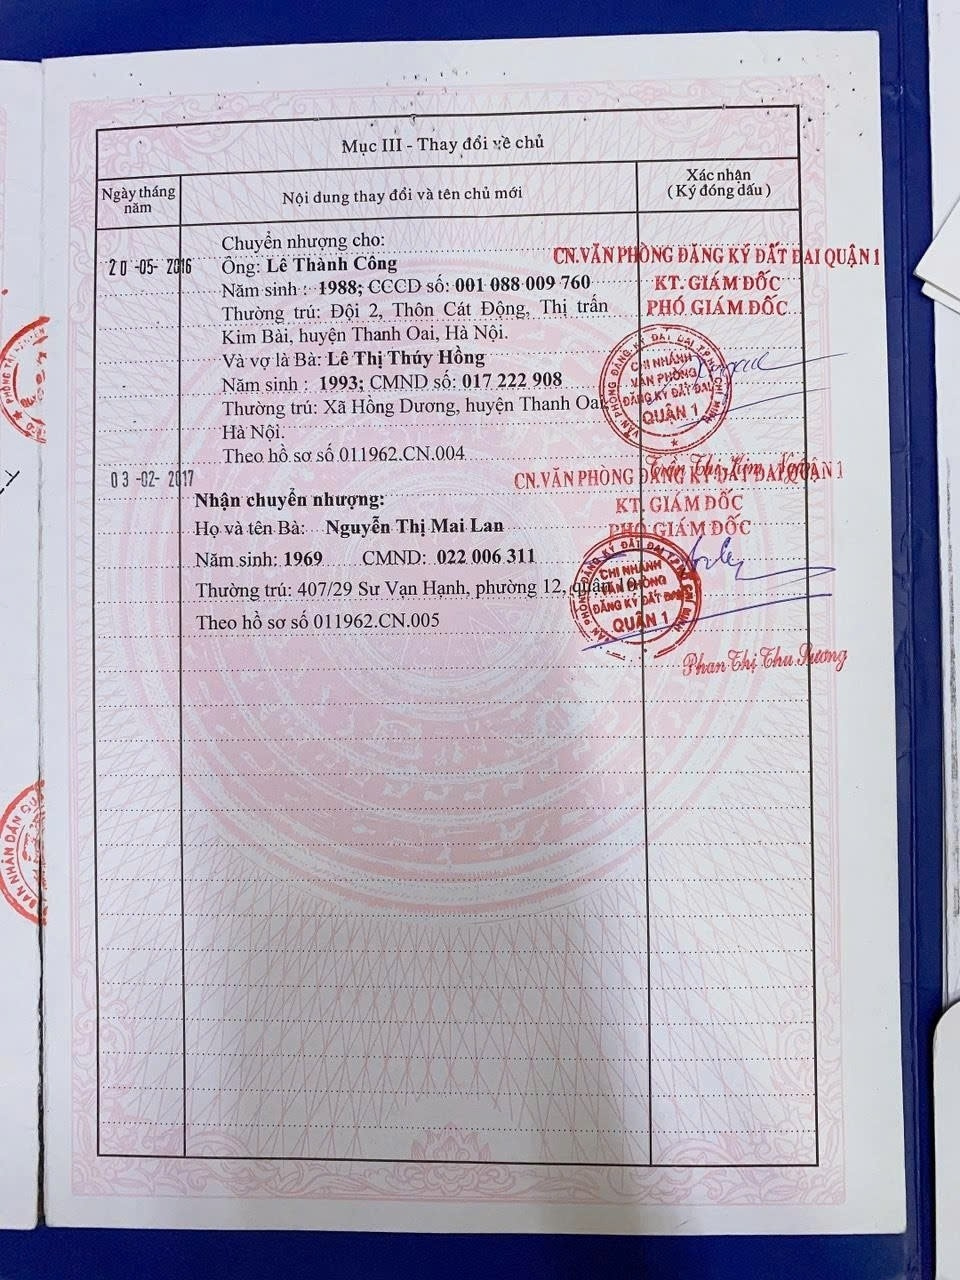 Mục III - Thay đổi về chủ
Ngày tháng năm
Nội dung thay đổi và tên chủ mới
Xác nhận
( Ký đóng dấu )
20 -05- 2016
Chuyển nhượng cho:
Ông: Lê Thành Công
Năm sinh : 1988; CCCD số: 001 088 009 760
Thường trú: Đội 2, Thôn Cát Động, Thị trấn
Kim Bài, huyện Thanh Oai, Hà Nội.
Và vợ là Bà: Lê Thị Thúy Hồng
Năm sinh : 1993; CMND số: 017 222 908
Thường trú: Xã Hồng Dương, huyện Thanh Oai,
Hà Nội.
Theo hồ sơ số 011962.CN.004
CN.VĂN PHÒNG ĐĂNG KÝ ĐẤT ĐAI QUẬN 1
KT. GIÁM ĐỐC
PHÓ GIÁM ĐỐC
VĂN PHÒNG ĐĂNG KÝ ĐẤT ĐAI TP.HỒ CHÍ MINH
CHI NHÁNH
VĂN PHÒNG
ĐĂNG KÝ ĐẤT ĐAI
QUẬN 1
Trần Thị Kim
03 -02- 2017
Nhận chuyển nhượng:
Họ và tên Bà: Nguyễn Thị Mai Lan
Năm sinh: 1969 CMND: 022 006 311
Thường trú: 407/29 Sư Vạn Hạnh, phường 12, quận 10
Theo hồ sơ số 011962.CN.005
CN.VĂN PHÒNG ĐĂNG KÝ ĐẤT ĐAI QUẬN 1
KT. GIÁM ĐỐC
PHÓ GIÁM ĐỐC
VĂN PHÒNG ĐĂNG KÝ ĐẤT ĐAI TP.HỒ CHÍ MINH
CHI NHÁNH
VĂN PHÒNG
ĐĂNG KÝ ĐẤT ĐAI
QUẬN 1
Phan Thị Thu Sương